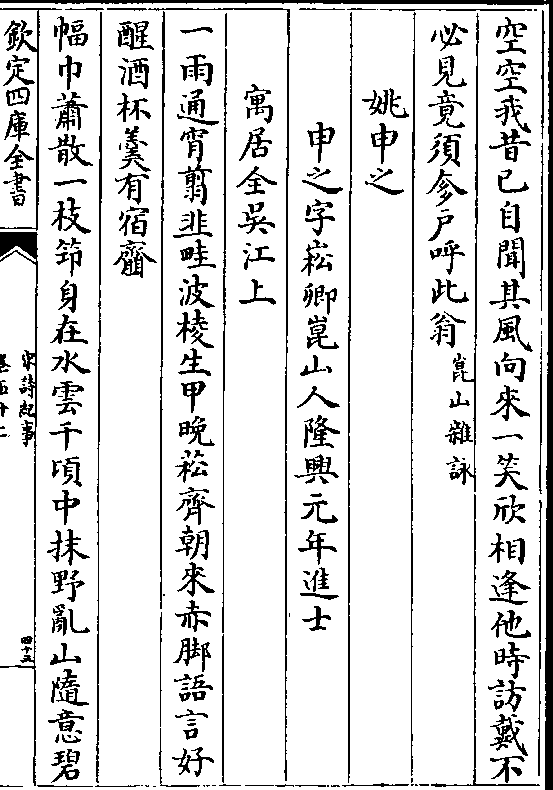 空空我昔已自聞其風向來一笑欣相逢他時訪戴不
必見竟須叅戶呼此翁 崑山雜詠
姚申之
申之字崧卿崑山人隆興元年進士
寓居全吳江上
一雨通宵翦韭畦波棱生甲晚崧齊朝來赤脚語言好
醒酒杯羹有宿齏
幅巾蕭散一枝笻身在水雲千頃中抹野亂山隨意碧
欽定四庫全書
宋詩紀事
四十五